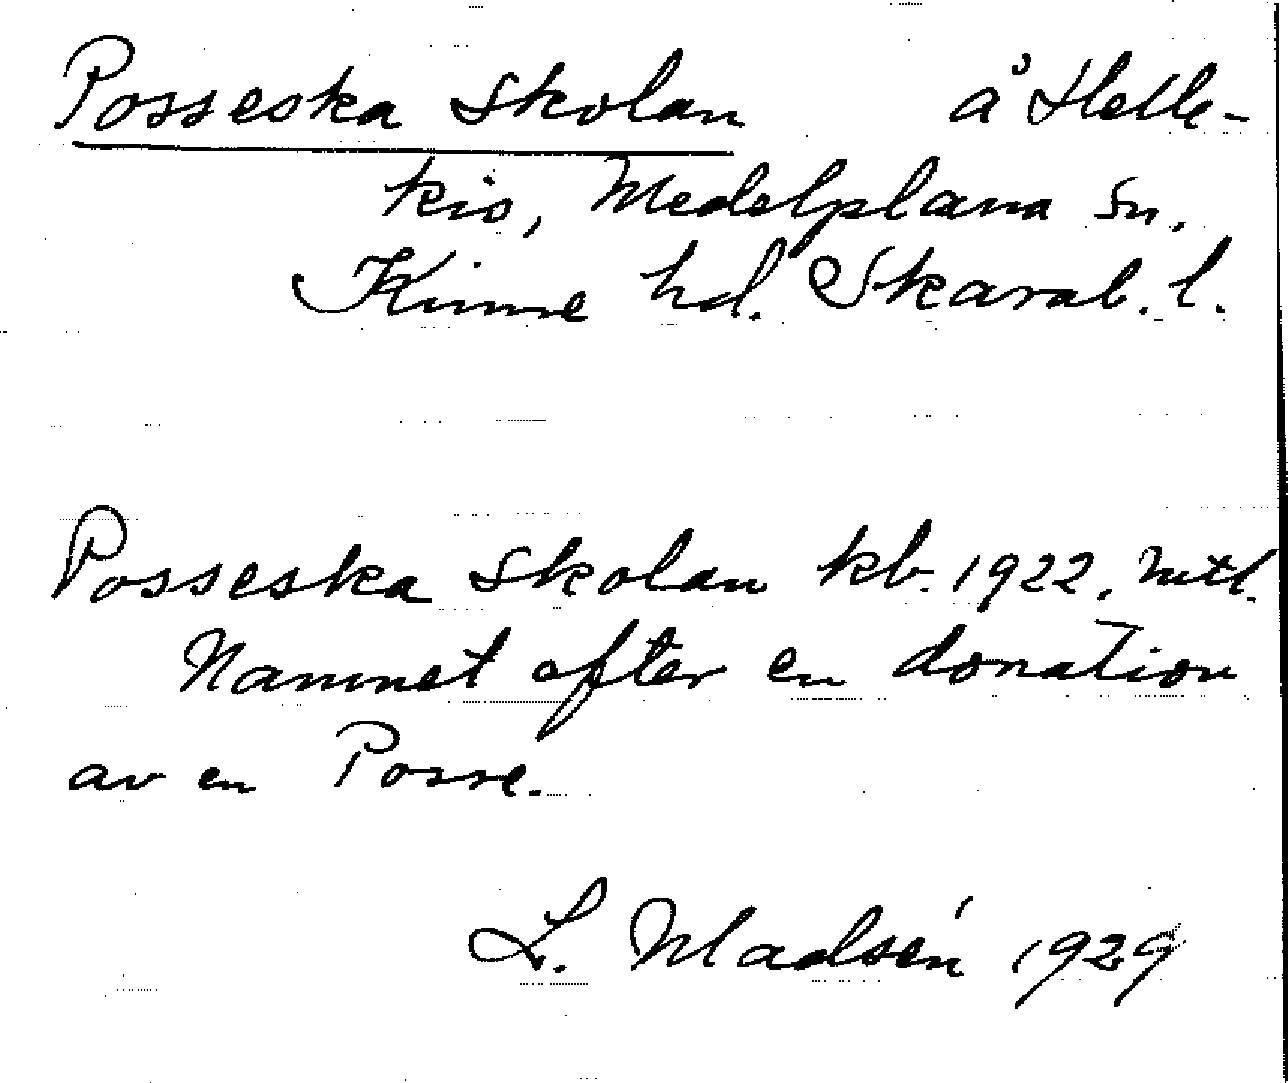 Posseska Skolan å Helle-
kis, Medelplana sn.
Kinne hd. Skarab. l.
Posseska Skolan kb. 1922, mtl.
Namnet efter en donation
av en Posse.
L. Madsén 1929